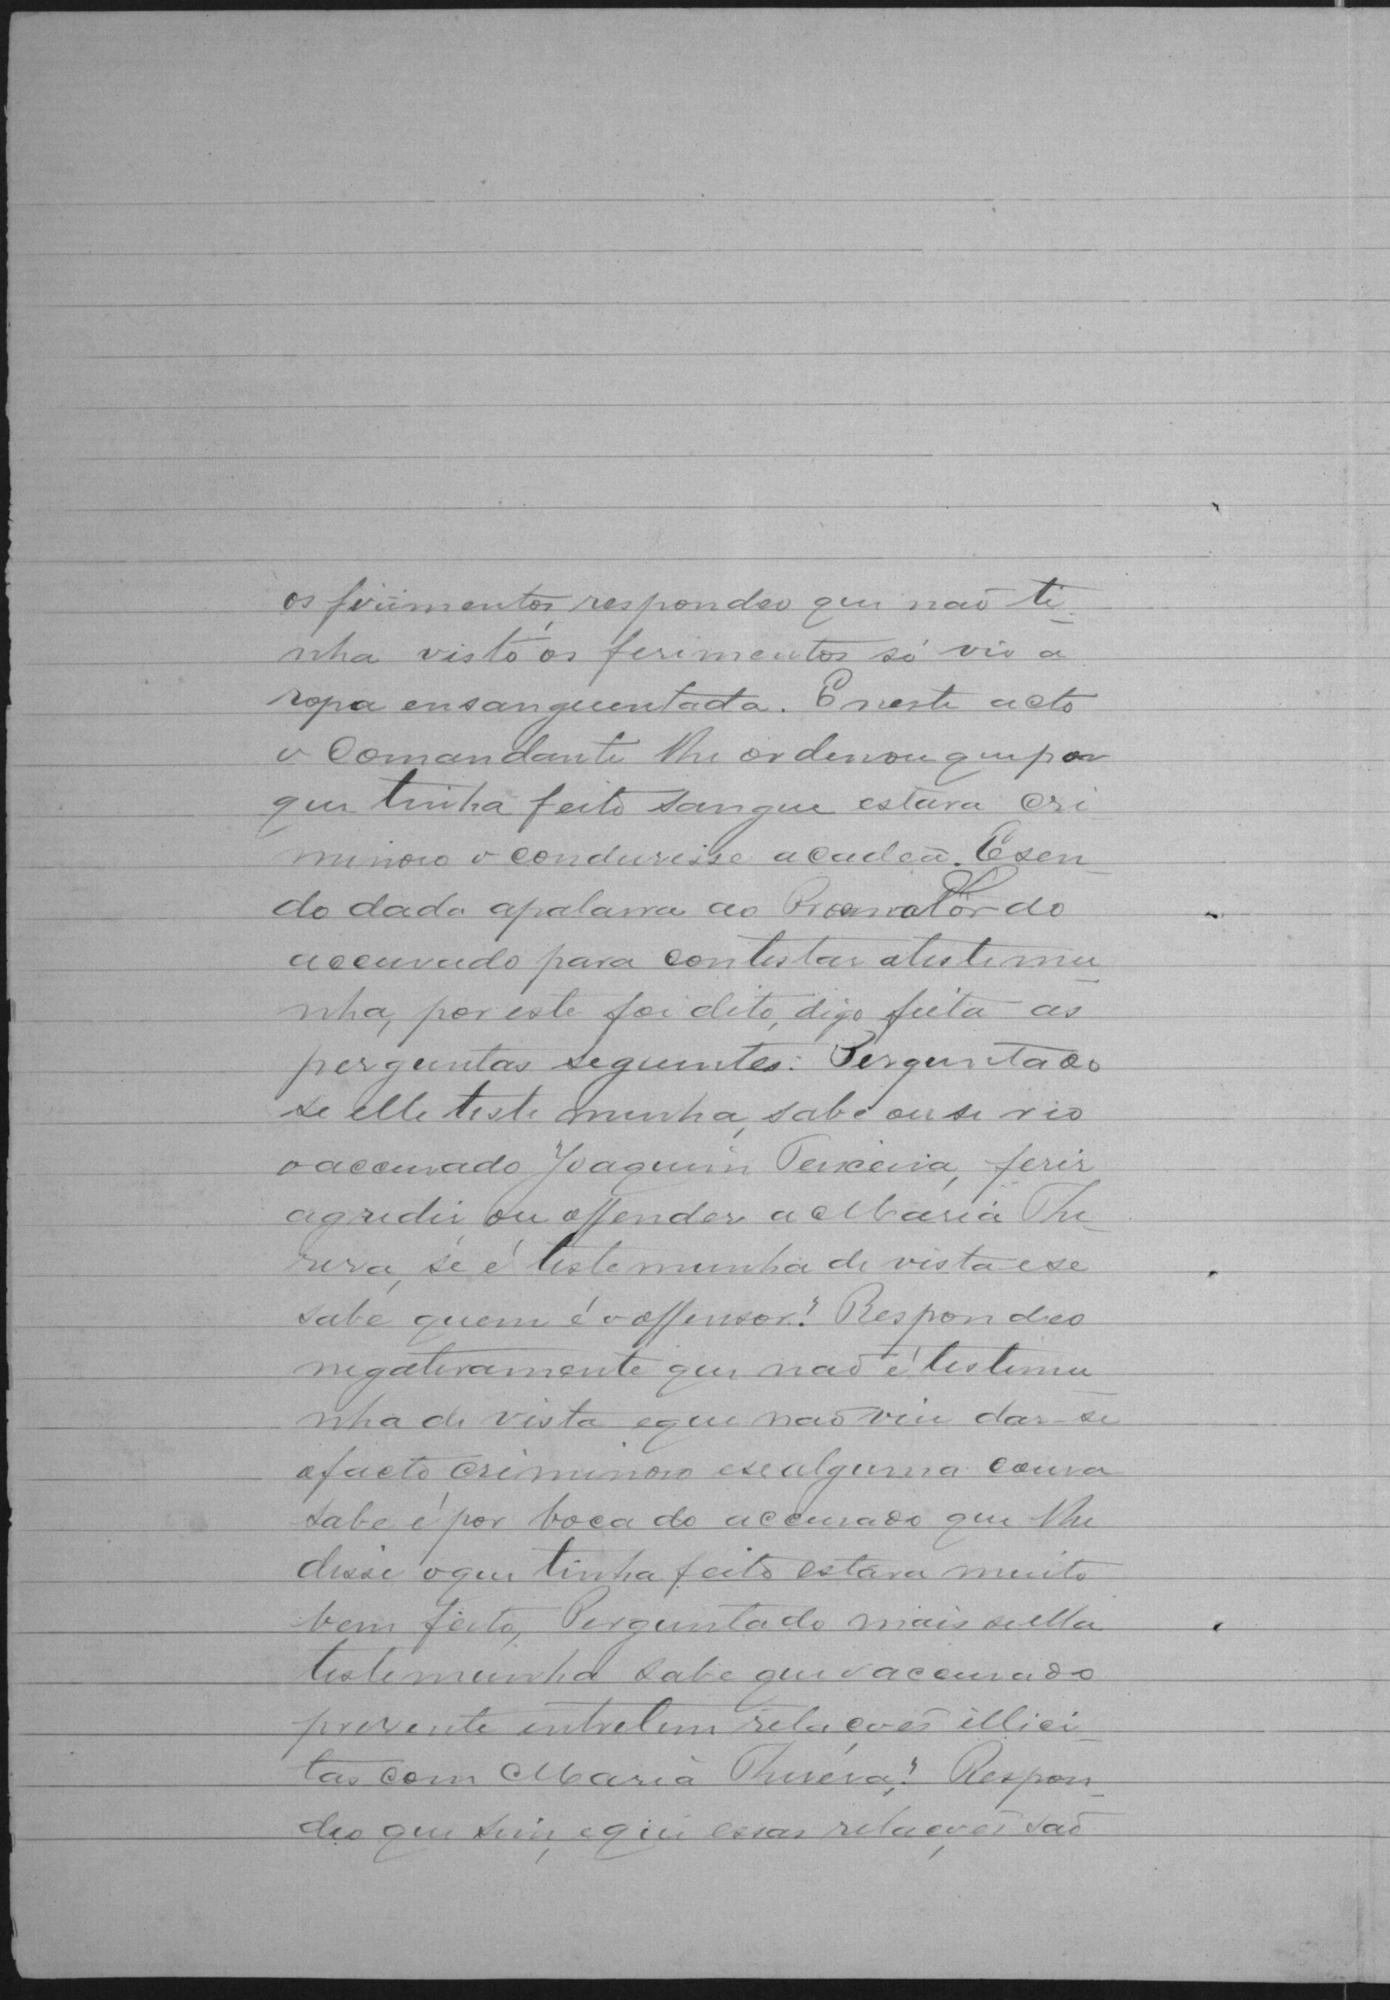 os feriimentos, respondeo que não ti-
nha visto os ferimentos só vio a
ropa ensanguentada. E neste acto
o Comandante lhe ordenou que por
que tinha feito sangue estava cri
minoso o conduzisse a cadea. E sen-
do dada apalavra ao Promotor do
accuzado para contestar atestemu
nha, por este foi dito, digo feita as
perguntas seguintes: Perguntado
se elle testemunha, sabe ou se vio
o accuzado Joaquim Teixeira, ferir
agredir ou offender a Maria The-
reza, se é testemunha de vista e se
sabe quem é o offensor? Respondeo
negativamente que não é testemu
nha de vista e que não viu dar-se
o facto criminoso e se alguma couza
sabe é por boca do accuzado que lhe
disse o que tinha feito estava muito
bem feito, Perguntado mais se ella
testemunha sabe que o accuzado
prezente entretem relações illici-
tas com Maria Thereza? Respon-
deo que sim, e que essas relações são